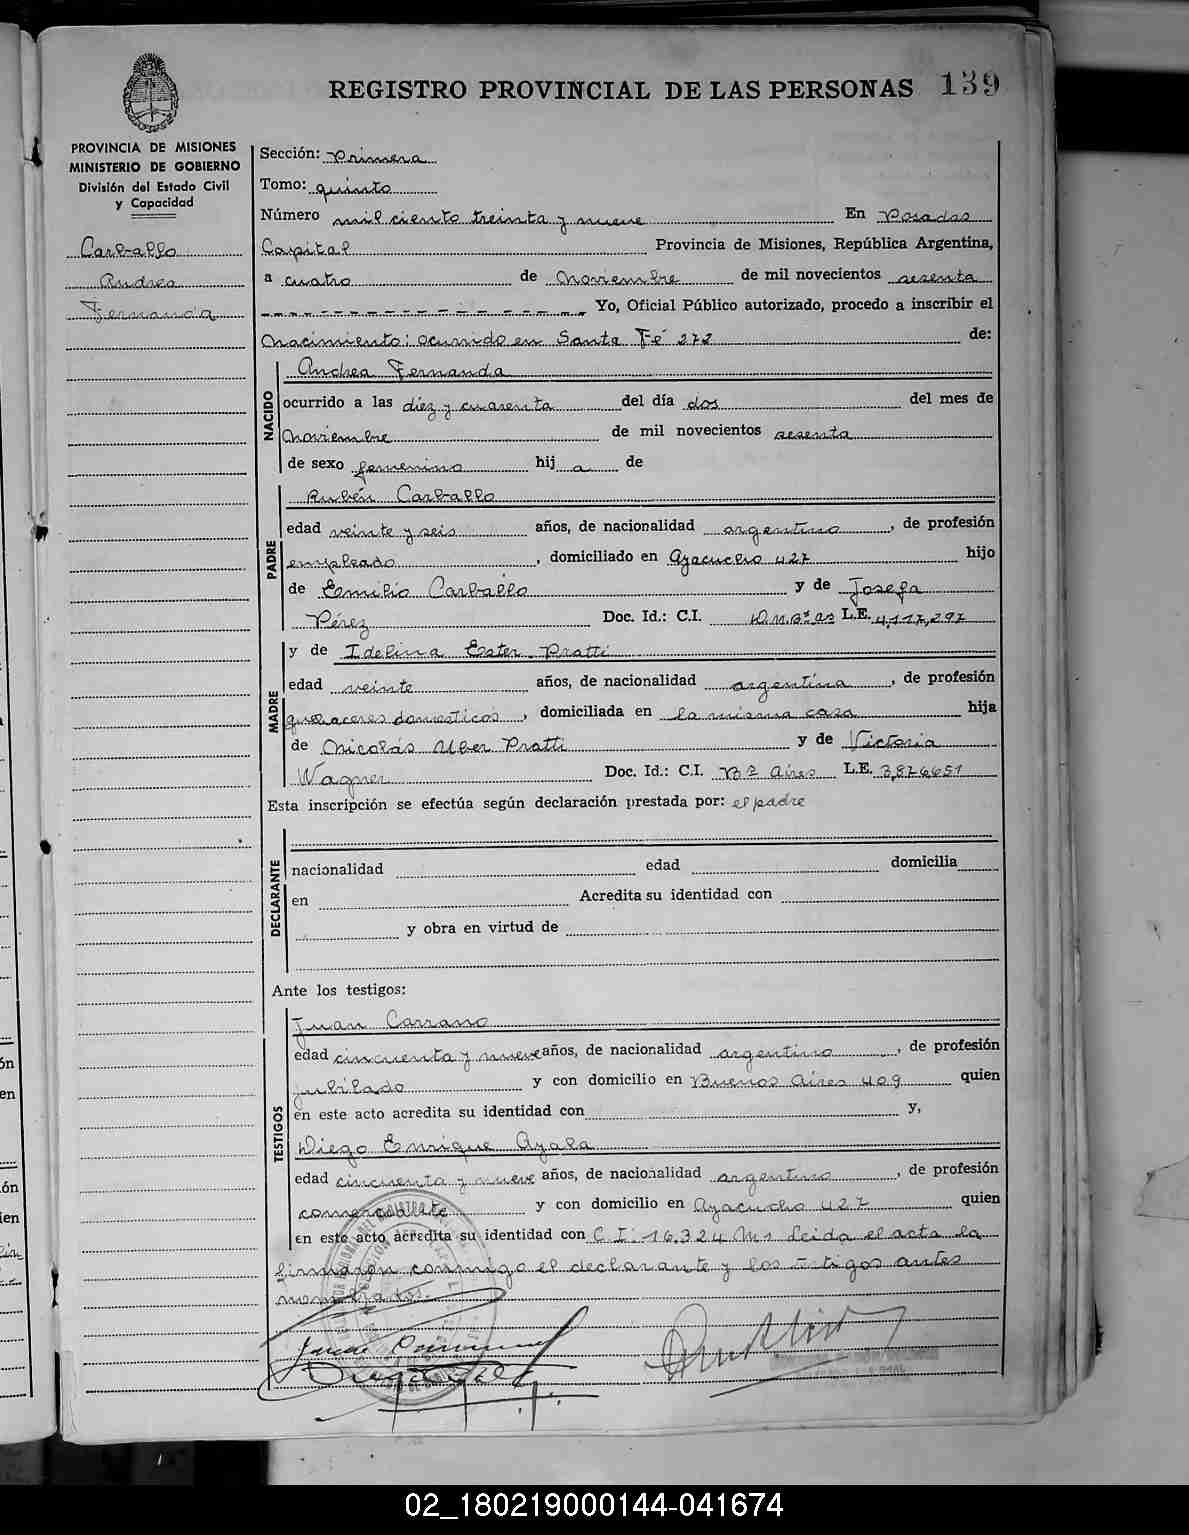 REGISTRO PROVINCIAL DE LAS PERSONAS 139
PROVINCIA DE MISIONES
MINISTERIO DE GOBIERNO
División del Estado Civil
y Capacidad
Carballo
Andrea
Fernanda
Sección: Primera
Tomo: quinto
Número mil ciento treinta y nueve En Posadas
Capital Provincia de Misiones, República Argentina,
a cuatro de Noviembre de mil novecientos sesenta
Yo, Oficial Público autorizado, procedo a inscribir el
Nacimiento: ocurrido en Santa Fé 272 de:
NACIDO
Andrea Fernanda
ocurrido a las diez y cuarenta del día dos del mes de
Noviembre de mil novecientos sesenta
de sexo femenino hij a de
PADRE
Rubén Carballo
edad veinte y seis años, de nacionalidad argentino, de profesión
empleado, domiciliado en Ayacucho 427 hijo
de Emilio Carballo y de Josefa
Pérez Doc. Id.: C.I. L.E. 4,117,297
MADRE
y de Idelina Ester Pratti
edad veinte años, de nacionalidad argentina, de profesión
quehaceres domesticos, domiciliada en la misma casa hija
de Nicolás Uber Pratti y de Victoria
Wagner Doc. Id.: C.I. Bs Aires L.E. 3,876651
Esta inscripción se efectúa según declaración prestada por: el padre
DECLARANTE
nacionalidad edad domicilia
en Acredita su identidad con
y obra en virtud de
Ante los testigos:
TESTIGOS
Juan Carrano
edad cincuenta y nueve años, de nacionalidad argentino, de profesión
jubilado y con domicilio en Buenos Aires 409 quien
en este acto acredita su identidad con y,
Diego Enrique Ayala
edad cincuenta y nueve años, de nacionalidad argentino, de profesión
comerciante y con domicilio en Ayacucho 427 quien
en este acto acredita su identidad con C.I: 16.324 Ms Leida el acta la
firmaron conmigo el declarante y los testigos antes
nombrados.
02_180219000144-041674